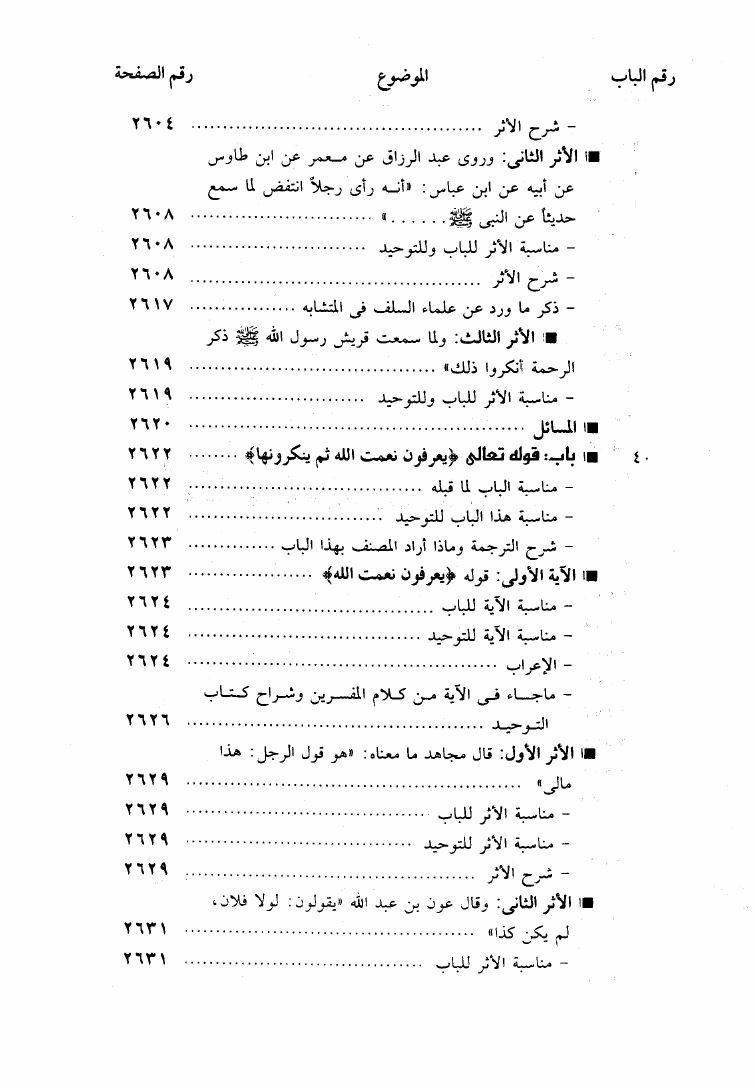 رقم الباب الموضوع رقم الصفحة
- شرح الأثر ........ ٢٦٠٤
■ الأثر الثانى: وروى عبد الرزاق عن معمر عن ابن طاوس
عن أبيه عن ابن عباس: «أنه رأى رجلاً انتفض لما سمع
حديثاً عن النبى ﷺ......» ........ ٢٦٠٨
- مناسبة الأثر للباب وللتوحيد ........ ٢٦٠٨
- شرح الأثر ........ ٢٦٠٨
- ذكر ما ورد عن علماء السلف فى المتشابه ........ ٢٦١٧
■ الأثر الثالث: ولما سمعت قريش رسول الله ﷺ ذكر
الرحمة أنكروا ذلك» ........ ٢٦١٩
- مناسبة الأثر للباب وللتوحيد ........ ٢٦١٩
■ المسائل ........ ٢٦٢٠
٤٠ ■ باب: قوله تعالى ﴿يعرفون نعمت الله ثم ينكرونها﴾ ........ ٢٦٢٢
- مناسبة الباب لما قبله ........ ٢٦٢٢
- مناسبة هذا الباب للتوحيد ........ ٢٦٢٢
- شرح الترجمة وماذا أراد المصنف بهذا الباب ........ ٢٦٢٣
■ الآية الأولى: قوله ﴿يعرفون نعمت الله﴾ ........ ٢٦٢٣
- مناسبة الآية للباب ........ ٢٦٢٤
- مناسبة الآية للتوحيد ........ ٢٦٢٤
- الإعراب ........ ٢٦٢٤
- ماجاء فى الآية من كلام المفسرين وشراح كتاب
التوحيد ........ ٢٦٢٦
■ الأثر الأول: قال مجاهد ما معناه: «هو قول الرجل: هذا
مالى» ........ ٢٦٢٩
- مناسبة الأثر للباب ........ ٢٦٢٩
- مناسبة الأثر للتوحيد ........ ٢٦٢٩
- شرح الأثر ........ ٢٦٢٩
■ الأثر الثانى: وقال عون بن عبد الله «يقولون: لولا فلان،
لم يكن كذا» ........ ٢٦٣١
- مناسبة الأثر للباب ........ ٢٦٣١